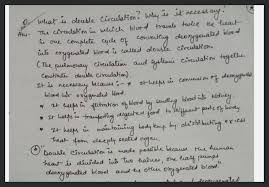 Q. What is double Circulation? Why is it necessary?
Ans. The circulation in which blood travels twice the heart
in one complete cycle of converting deoxygenated blood
into oxygenated blood is called double circulation.
(The pulmonary circulation and systemic circulation together
constitute double circulation).
It is necessary because :- • It helps in conversion of deoxygenated
blood into oxygenated blood.
• It helps in filtration of blood by sending blood into kidney.
• It helps in transporting digested food to different parts of body.
• It helps in maintaining body temp by distributing excess
heat from deeply seated organ.
Double Circulation is made possible because the human
heart is divided into two halves, one half pumps
deoxygenated blood and the other oxygenated blood.